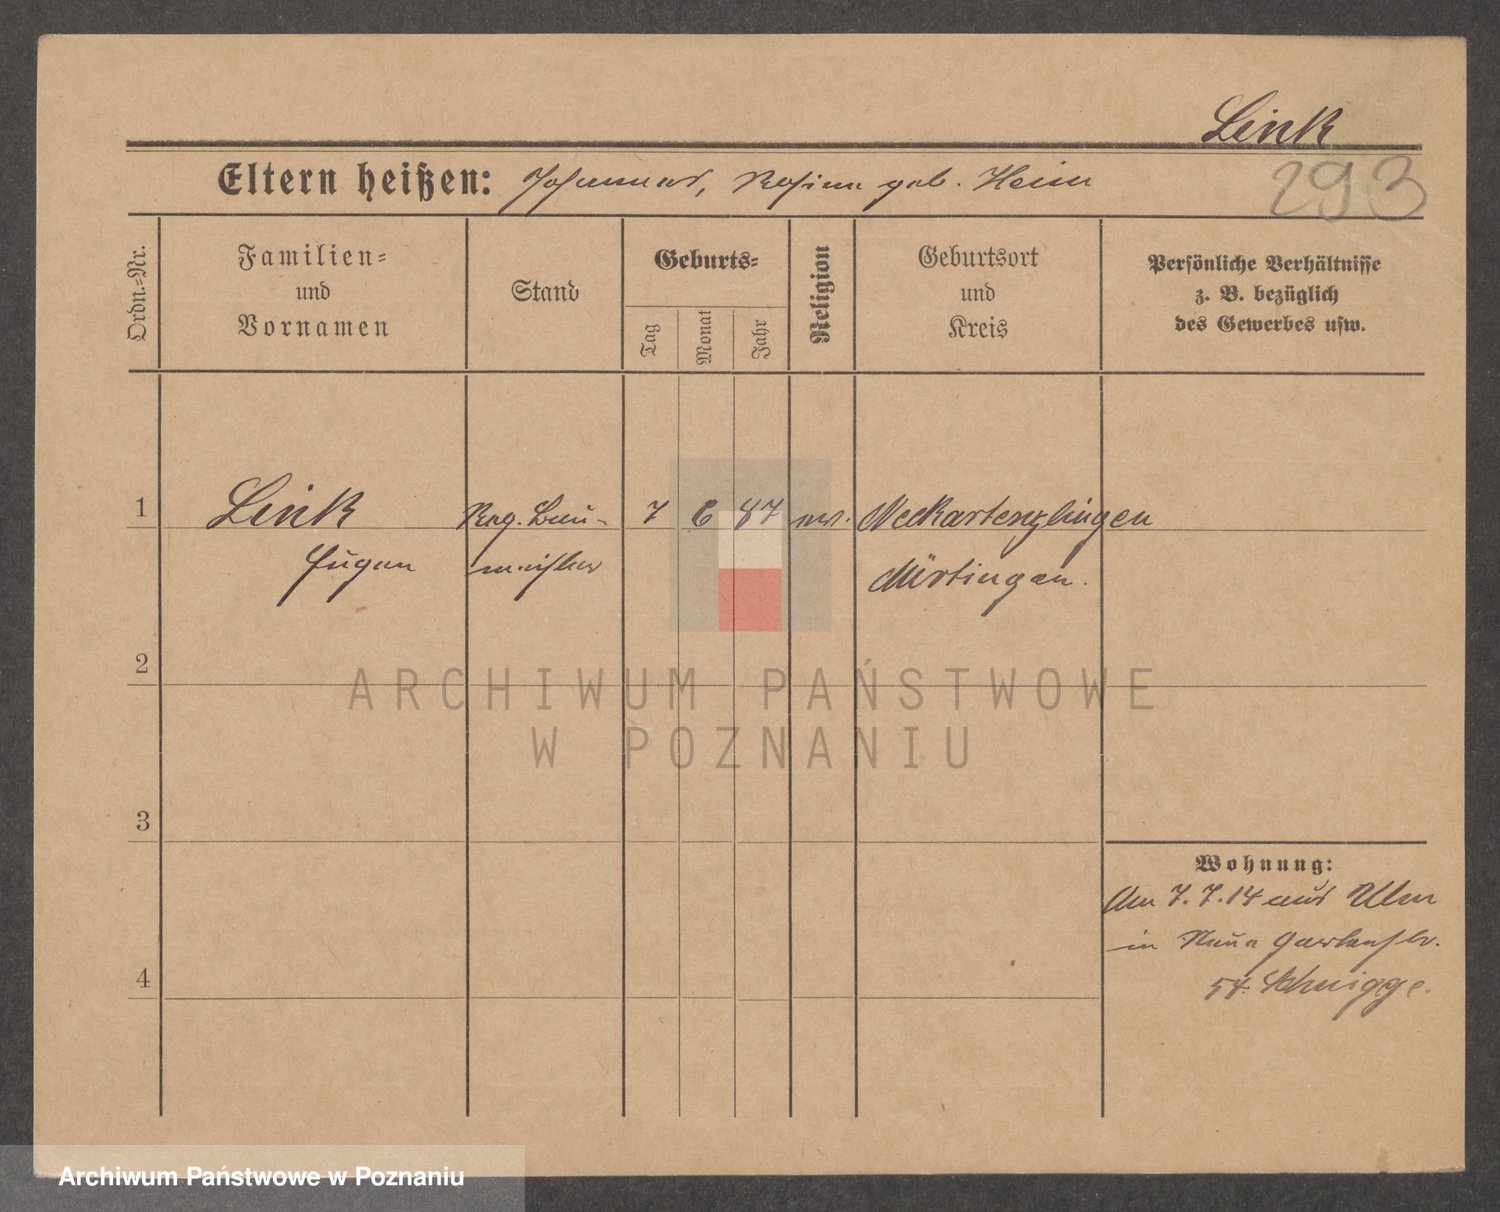 Link
Eltern heißen: Johannes, Rosina geb. Heim
293
Ordn.-Nr.
Familien-
und
Vornamen
Stand
Geburts-
Tag
Monat
Jahr
Religion
Geburtsort
und
Kreis
Persönliche Verhältnisse
z. B. bezüglich
des Gewerbes usw.
1 Link Reg. Bau- 7 6 87 ev. Neckartenzlingen
Eugen meister Nürtingen.
2
3
Wohnung:
Am 7.7.14 aus Ulm
in Neue Gartenstr.
4
54. Schnigge.
ARCHIWUM PAŃSTWOWE
W POZNANIU
Archiwum Państwowe w Poznaniu